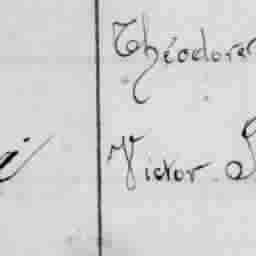 Théodore
Victor